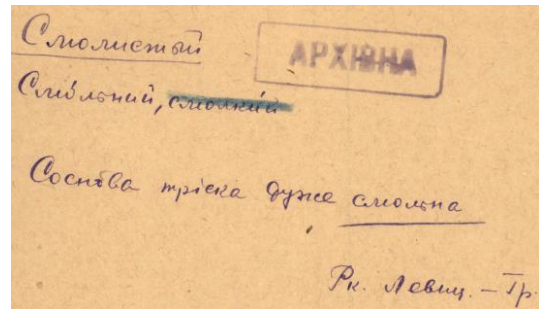 Смолистый
АРХІВНА
Смо́льний, смолки́й
Сосно́ва тріска дуже смольна
Рк. Левиц. – Гр.